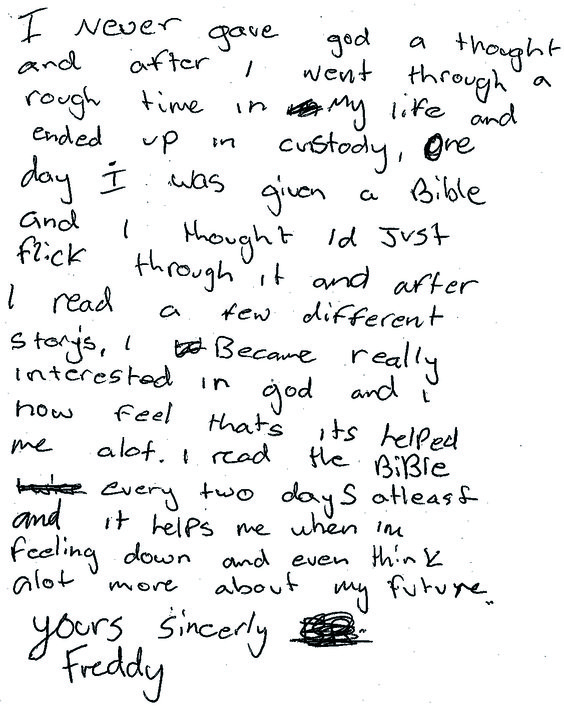 I Never gave god a thought
and after I went through a
rough time in My life and
ended up in custody, One
day I was given a Bible
and I thought Id Just
flick through it and after
I read a few different
storys, I Became really
interested in god and I
now feel thats its helped
me alot. I read the BiBle
every two dayS atleast
and it helps me when im
feeling down and even think
alot more about my future.
yours sincerly
Freddy